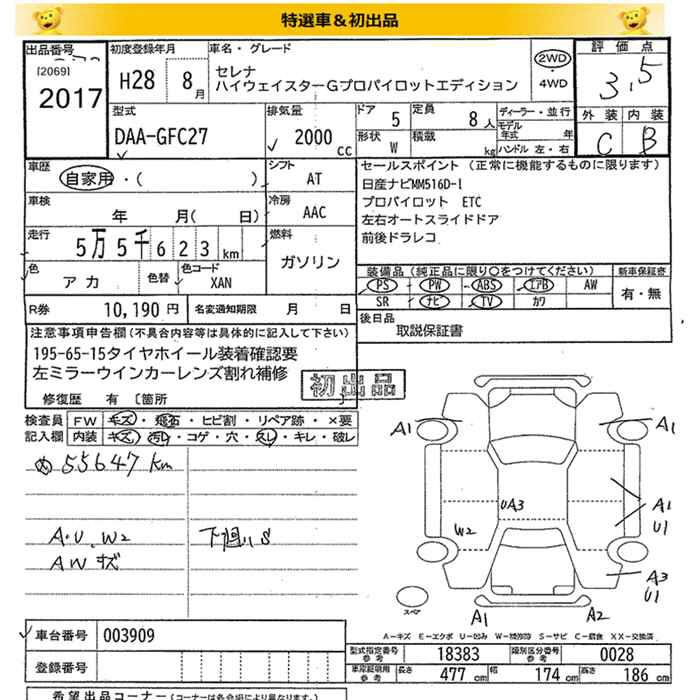 特選車&初出品
出品番号
[2069]
2017
初度登録年月
H28 8月
車名・グレード
セレナ
ハイウェイスターGプロパイロットエディション
2WD
・
4WD
評価点
3.5
外装 内装
C B
型式
DAA-GFC27
排気量
2000 cc
ドア 5
定員 8人
形状 W
積載 kg
ディーラー・並行
モデル年式 年
ハンドル 左・右
車歴
自家用・( )
シフト
AT
車検
年 月( 日)
冷房
AAC
走行
5万5千623km
燃料
ガソリン
色
アカ
色替
色コード
XAN
セールスポイント (正常に機能するものに限ります)
日産ナビMM516D-l
プロパイロット ETC
左右オートスライドドア
前後ドラレコ
装備品(純正品に限り○をつけてください)
PS PW ABS エアB AW
SR ナビ TV カワ
新車保証書
有・無
R券 10,190 円
名変通知期限 月 日
後日品
取説保証書
注意事項申告欄(不具合内容等は具体的に記入して下さい)
195-65-15タイヤホイール装着確認要
左ミラーウインカーレンズ割れ補修
修復歴 有 〔箇所
初出品
検査員記入欄
FW キズ・飛石・ヒビ割・リペア跡・×要
内装 キズ・汚レ・コゲ・穴・スレ・キレ・破レ
55647km
A・U、W2
AWキズ
下廻りS
A1
A1
UA3
W2
A1
U1
A3
U1
スペア
A1
A2
A-キズ E-エクボ U-凹み W-補修跡 S-サビ C-腐食 XX-交換済
車台番号 003909
登録番号
型式指定番号 参考 18383
類別区分番号 参考 0028
車庫証明用 参考 長さ 477 cm 幅 174 cm 高さ 186 cm
希望出品コーナー(コーナーは各会場により異なります)